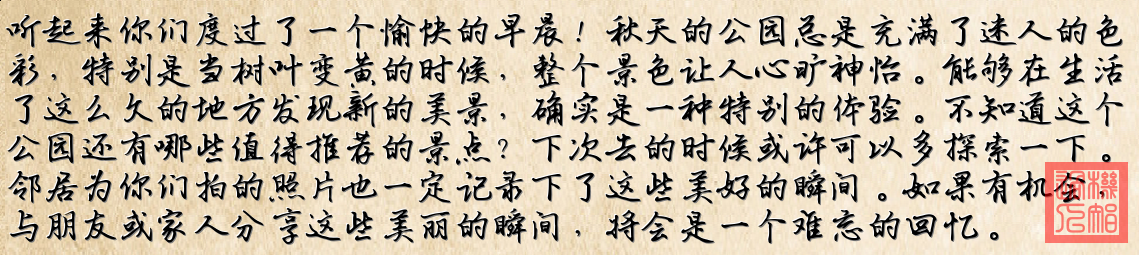 听起来你们度过了一个愉快的早晨！秋天的公园总是充满了迷人的色
彩，特别是当树叶变黄的时候，整个景色让人心旷神怡。能够在生活
了这么久的地方发现新的美景，确实是一种特别的体验。不知道这个
公园还有哪些值得推荐的景点？下次去的时候或许可以多探索一下。
邻居为你们拍的照片也一定记录下了这些美好的瞬间。如果有机会，
与朋友或家人分享这些美丽的瞬间，将会是一个难忘的回忆。